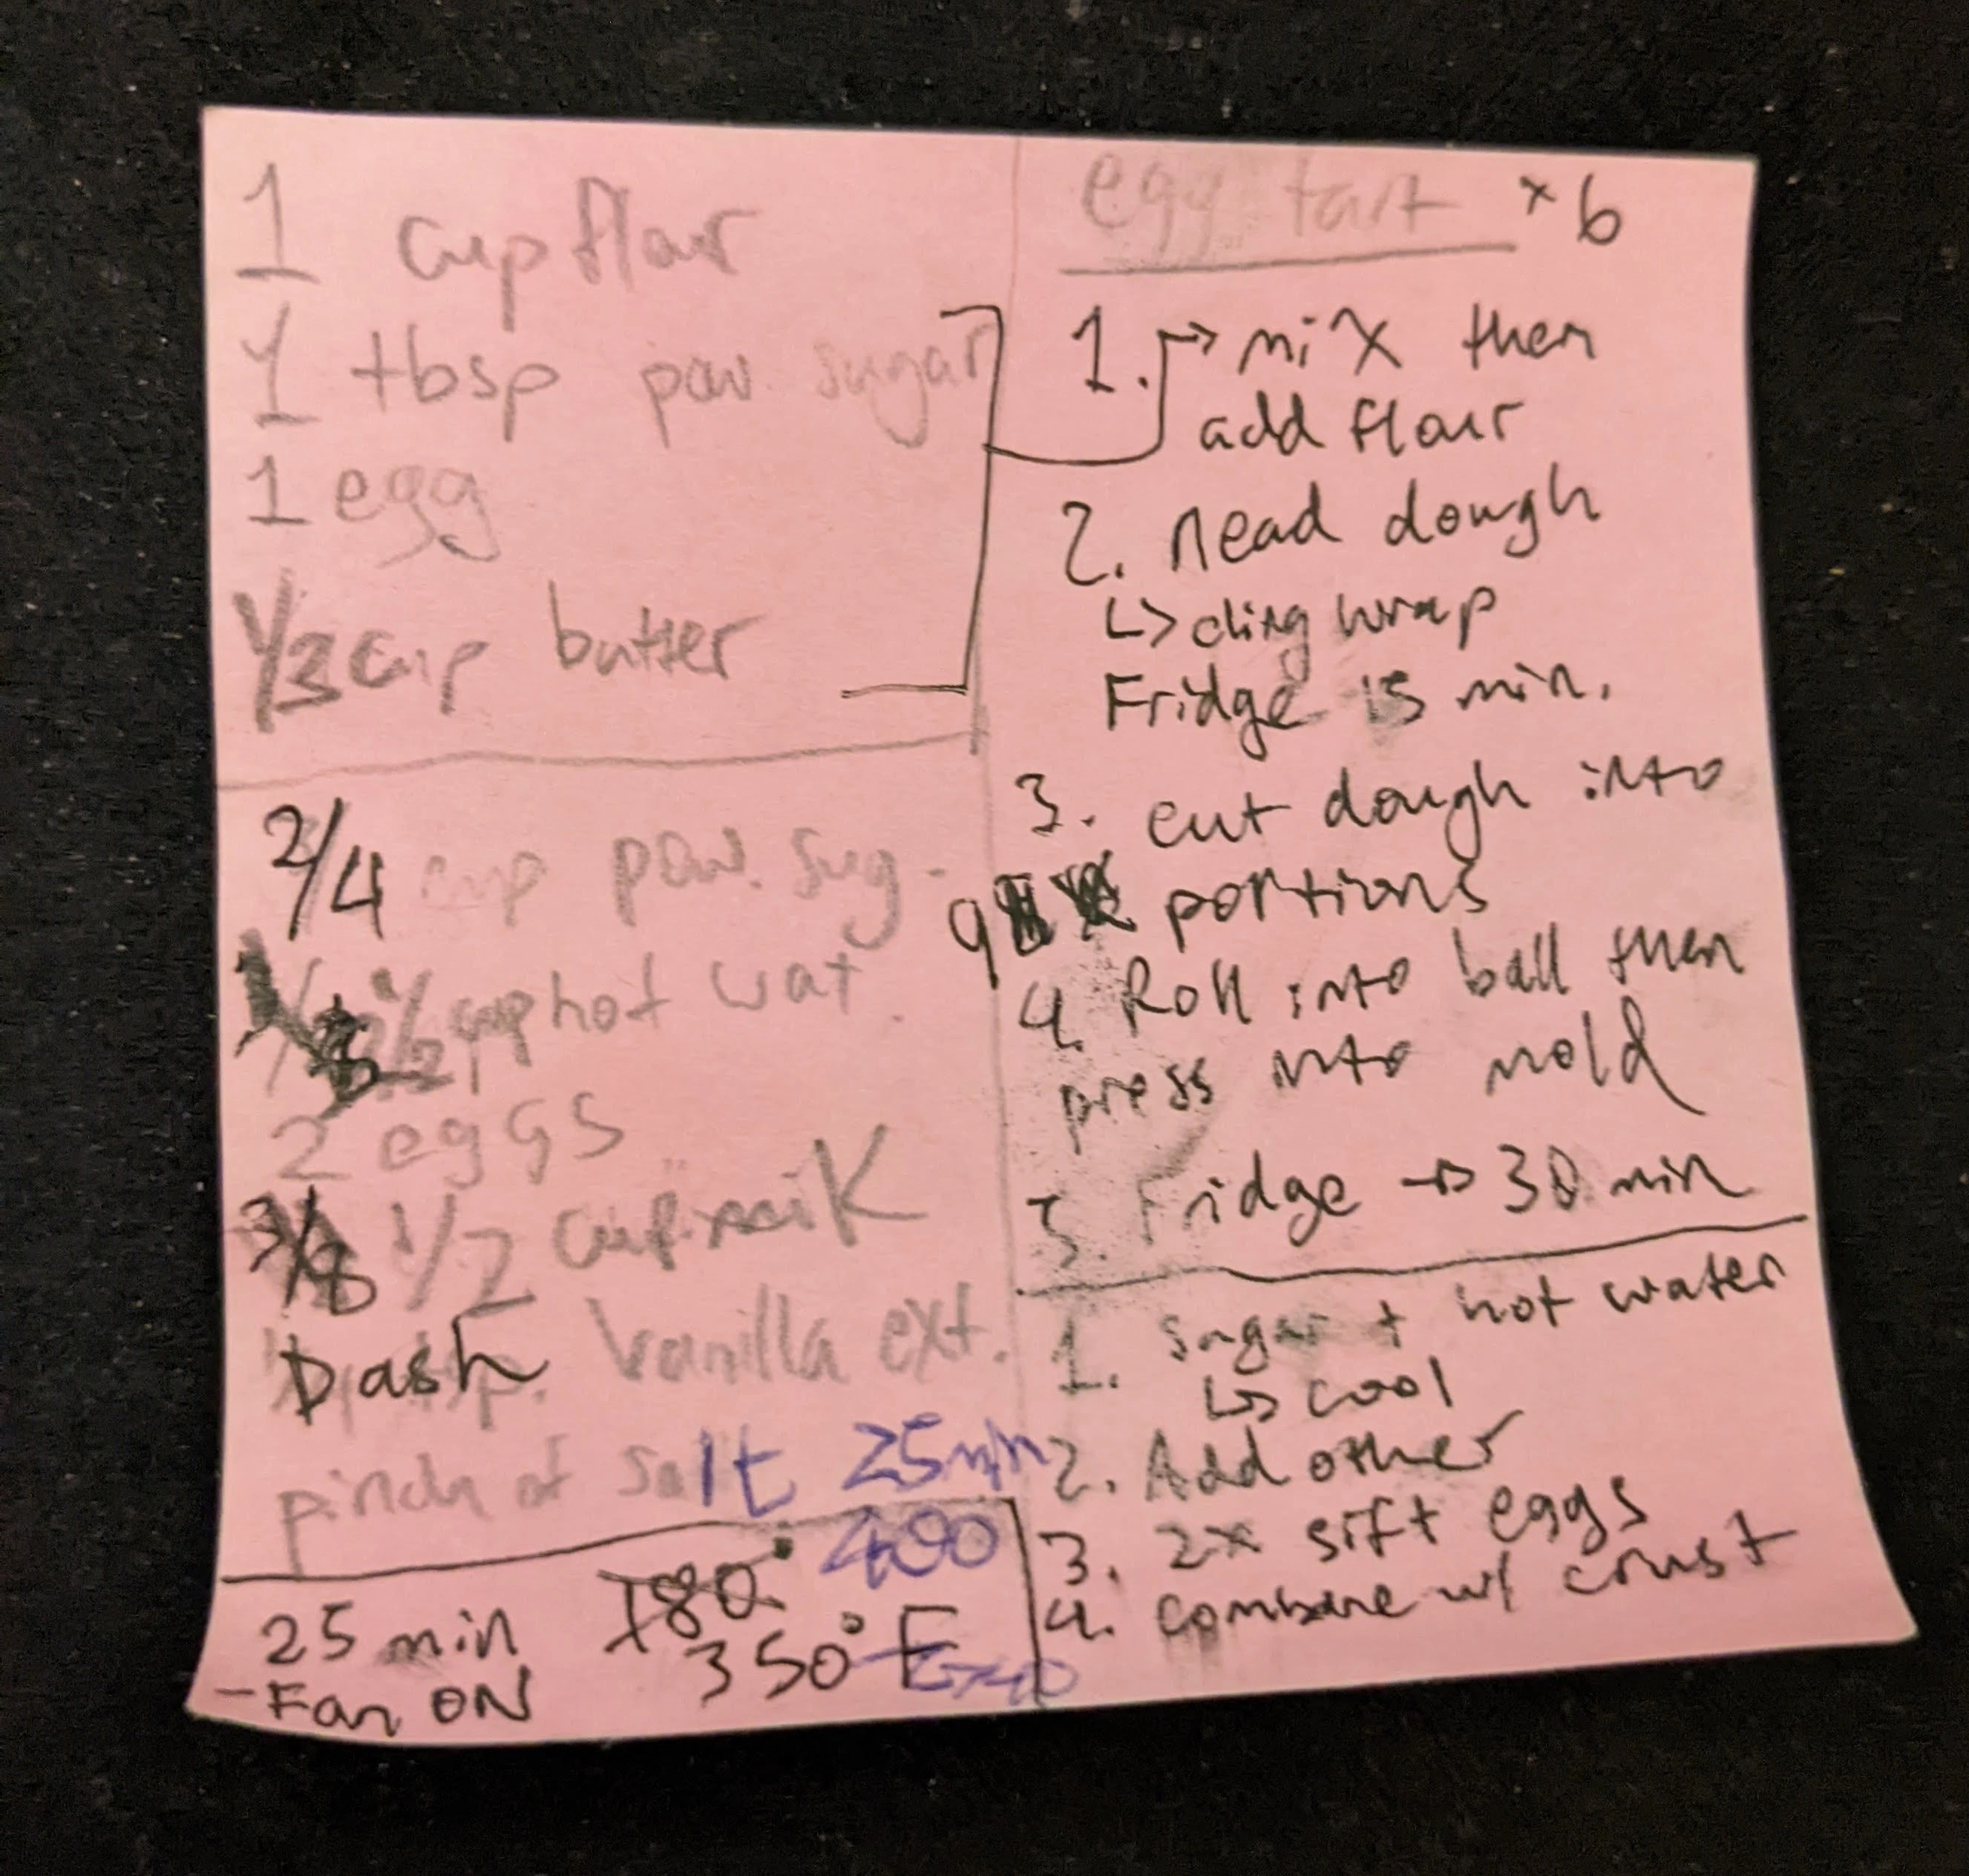 1 cup flour
1 tbsp pow. sugar
1 egg
1/3 cup butter
2/4 cup pow. sug.
1/2 cup hot wat.
2 eggs
3/8 1/2 cup milk
Dash vanilla ext.
pinch of salt 25 min
180° 400
25 min 350° F
- Fan ON
egg tart × 6
1. → mix then
add flour
2. nead dough
↳ cling wrap
Fridge 15 min.
3. cut dough into
9 portions
4. Roll into ball then
press into mold
5. Fridge → 30 min
1. sugar + hot water
↳ cool
2. Add other
3. 2x sift eggs
4. combine w/ crust